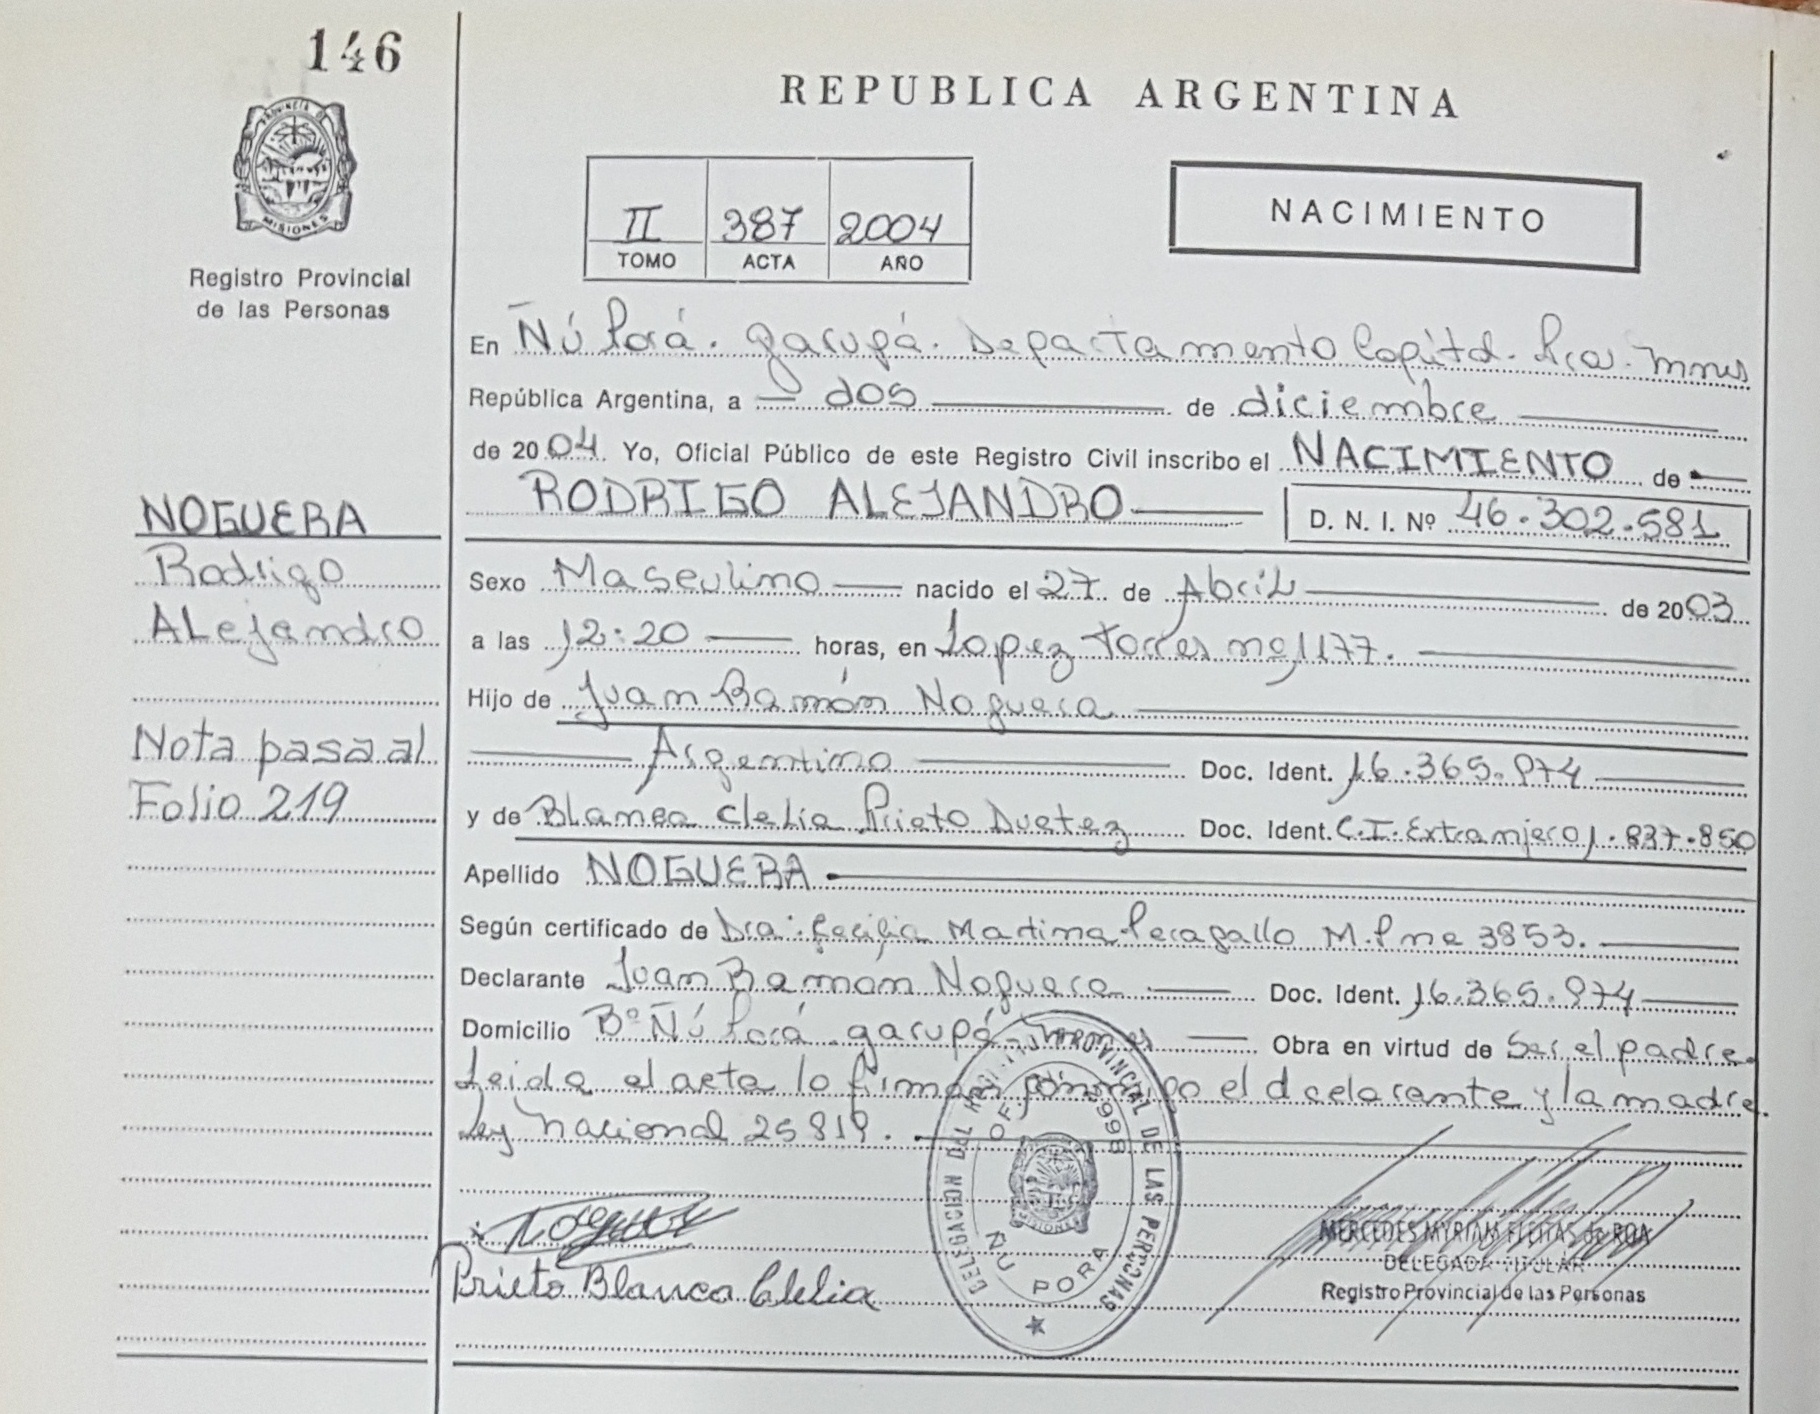 146
PROVINCIA D
MISIONES
Registro Provincial
de las Personas
REPUBLICA ARGENTINA
II 387 2004
TOMO ACTA AÑO
NACIMIENTO
En Ñú Porá. Garupá. Departamento Capital. Pcia. Mnes
República Argentina, a dos de diciembre
de 2004. Yo, Oficial Público de este Registro Civil inscribo el NACIMIENTO de
RODRIGO ALEJANDRO D. N. I. Nº 46.302.581
NOGUERA
Rodrigo
ALejandro
Nota pasa al
Folio 219
Sexo Masculino nacido el 27 de AbriL de 2003
a las 12:20 horas, en Lopez Torres nº 1177.
Hijo de Juan Ramón Noguera
Argentino Doc. Ident. 16.365.974
y de Blanca Clelia Prieto Duetez Doc. Ident. C.I. Extranjero 1.837.850
Apellido NOGUERA
Según certificado de Dra. Cecilia Martina Peragallo M.P nº 3853.
Declarante Juan Ramon Noguera Doc. Ident. 16.365.974
Domicilio Bº Ñú Porá. Garupá. Misiones Obra en virtud de Ser el padre.
Leida el acta lo firman conmigo el dcelarante y la madre.
Ley Nacional 25819.
DELEGACION DEL REG. PROVINCIAL DE LAS PERSONAS
OF. 2998
MISIONES
ÑU PORA
Noguera
Prieto Blanca Clelia
MERCEDES MYRIAM FLEITAS de ROA
DELEGADA TITULAR
Registro Provincial de las Personas